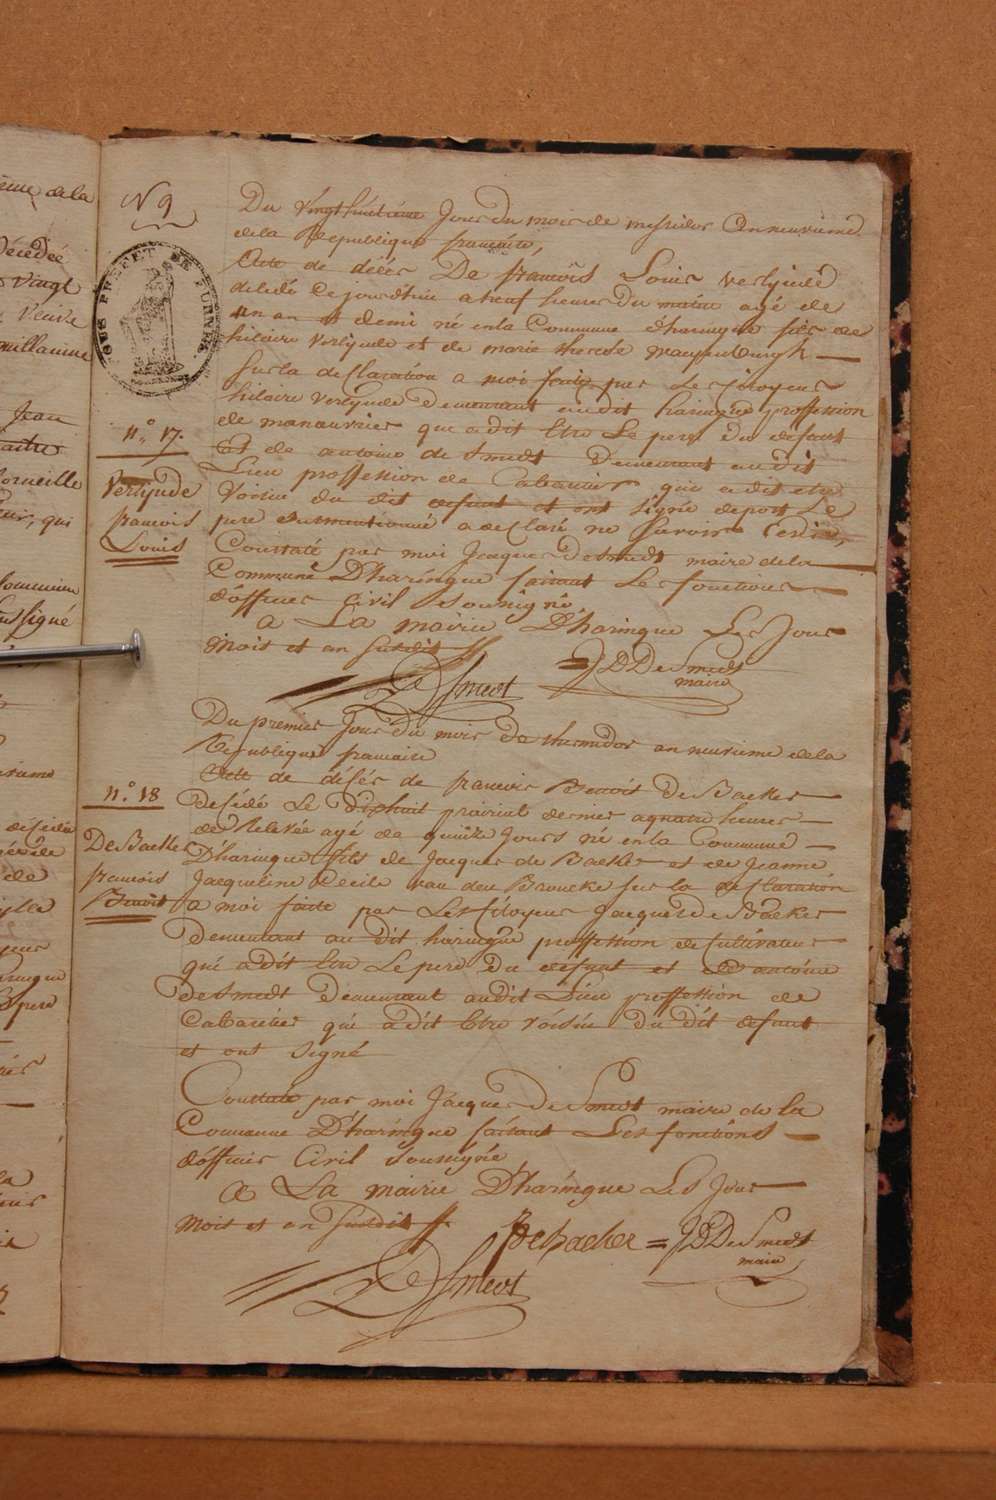 N 9
SOUS PREFET DE FURNES
Du vingt huitieme Jour du mois de messidor an neuvieme
de la Republique francaise,
Acte de décès De francois Louis verlynde
décédé Ce jourd'hui a neuf heures du matin agé de
un an et demi né en la Commune d'haringue fils de
hilaire verlynde et de marie therese
Sur la declaration a moi faite par Les Citoyens
hilaire verlynde demeurant au dit haringue proffession
de manouvrier qui a dit Etre Le pere du defunt
Et de antoine de Smedt Demeurant au dit
Lieu proffession de Cabaretier qui a dit etre
voisin du dit defunt et ont signé Le
pere a declaré ne savoir
n.º 17.
verlynde
francois
Louis
Constaté par moi Jacques De Smedt maire de la
Commune D'haringue faisant Les fonctions
d'officier Civil soussigné
a La mairie D'haringue Les Jour
mois et an susdit
J D De Smedt
maire
DSmedt
Du premier Jour du mois De thermidor an neuvieme de la
Republique francaise
n.º 18
De Backer
francois
Benoit
Acte de décés de francois Benoit De Backer
Decédé Le dixhuit prairial dernier a quatre heures
de Relevée agé de quinze Jours né en la Commune
D'haringue fils de Jacques de Backer et de Jeanne
Jacqueline Cecile van den Broucke sur la declaration
a moi faite par Les Citoyens Jacques De Backer
demeurant au dit haringue proffession de Cultivateur
qui a dit Etre Le pere Du defunt et de antoine
deSmedt Demeurant au dit Lieu proffession de
Cabaretier qui a dit Etre voisin Du dit defunt
et ont signé
Constaté par moi Jacques De Smedt maire de la
Commune D'haringue faisant Les fonctions
d'officier Civil soussigné
a La mairie D'haringue Les Jour
mois et an susdit
De backer = J D De Smedt
maire
DSmedt